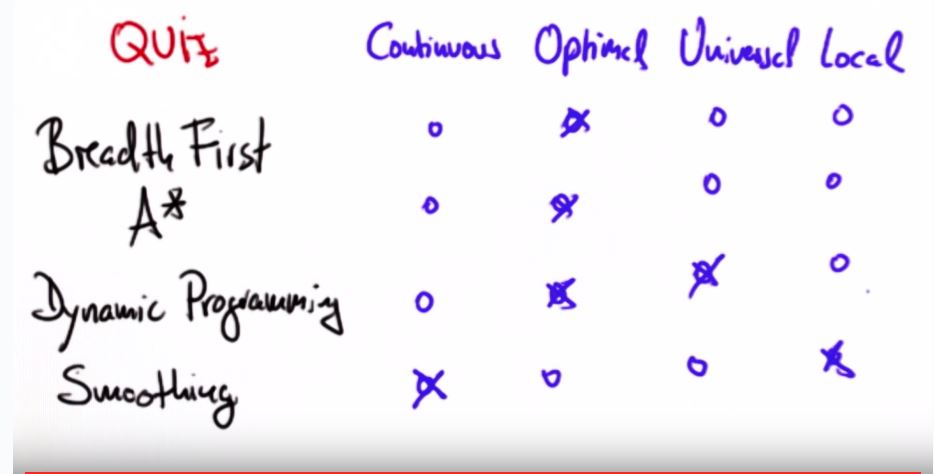 QUIZ Continuous Optimal Universal Local
Breadth First
A*
Dynamic Programming
Smoothing